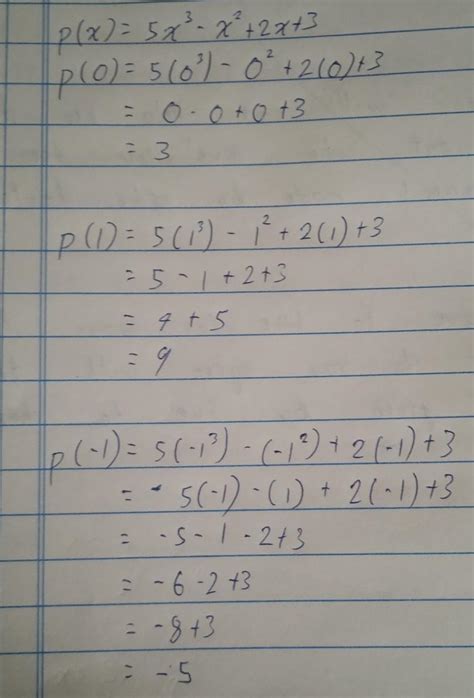 p(x) = 5x³ - x² + 2x + 3
p(0) = 5(0³) - 0² + 2(0) + 3
= 0 - 0 + 0 + 3
= 3
p(1) = 5(1³) - 1² + 2(1) + 3
= 5 - 1 + 2 + 3
= 4 + 5
= 9
p(-1) = 5(-1³) - (-1²) + 2(-1) + 3
= - 5(-1) - (1) + 2(-1) + 3
= -5 - 1 - 2 + 3
= -6 - 2 + 3
= -8 + 3
= -5